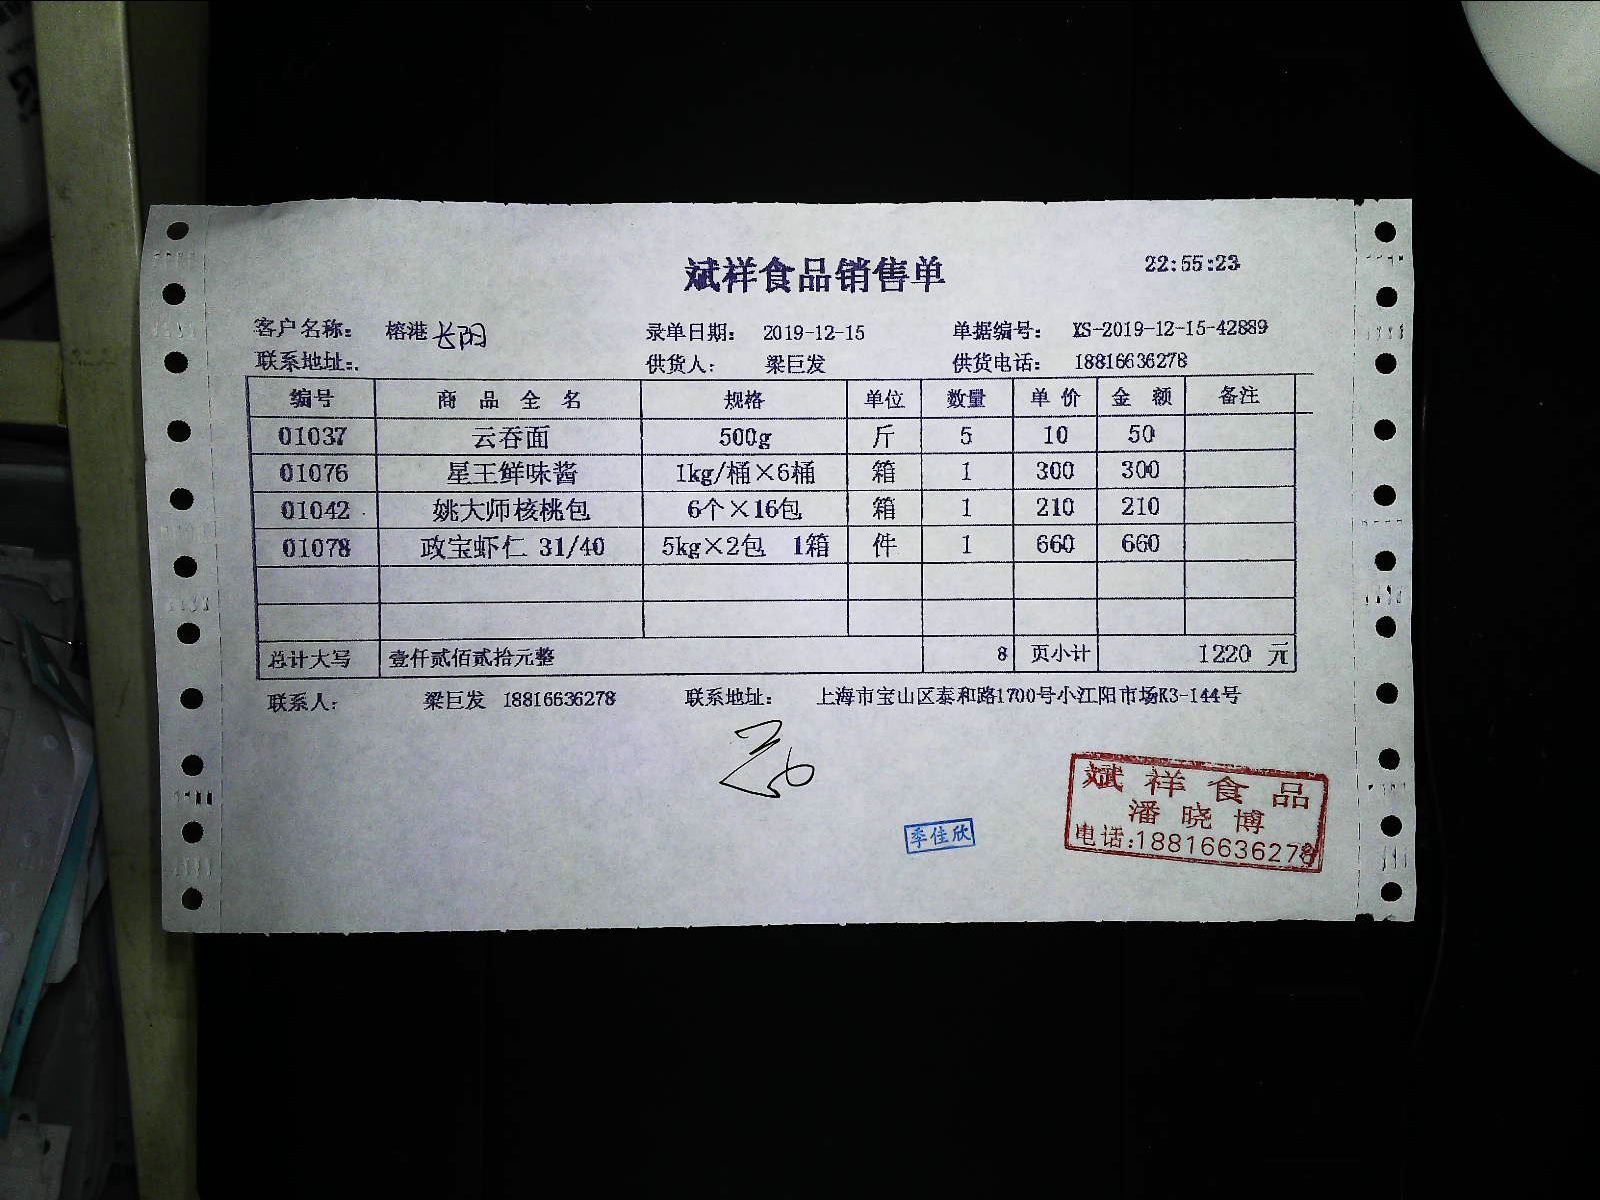 斌祥食品销售单 22:55:23
客户名称: 榕港 长阳 录单日期: 2019-12-15 单据编号: XS-2019-12-15-42889
联系地址:. 供货人: 梁巨发 供货电话: 18816636278
编号 商品全名 规格 单位 数量 单价 金额 备注
01037 云吞面 500g 斤 5 10 50
01076 星王鲜味酱 1kg/桶×6桶 箱 1 300 300
01042 姚大师核桃包 6个×16包 箱 1 210 210
01078 政宝虾仁 31/40 5kg×2包 1箱 件 1 660 660
总计大写 壹仟贰佰贰拾元整 8 页小计 1220 元
联系人: 梁巨发 18816636278 联系地址: 上海市宝山区泰和路1700号小江阳市场K3-144号
斌祥食品
潘晓博
电话:18816636278
季佳欣